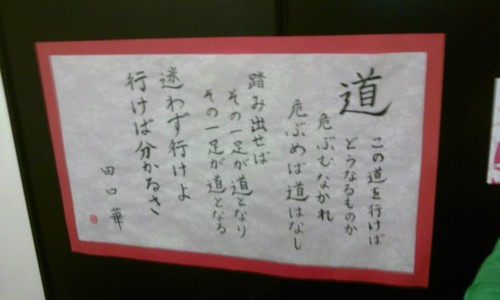 道
この道を行けば
どうなるものか
危ぶむなかれ
危ぶめば道はなし
踏み出せば
その一足が道となり
その一足が道となる
迷わず行けよ
行けば分かるさ
田口華